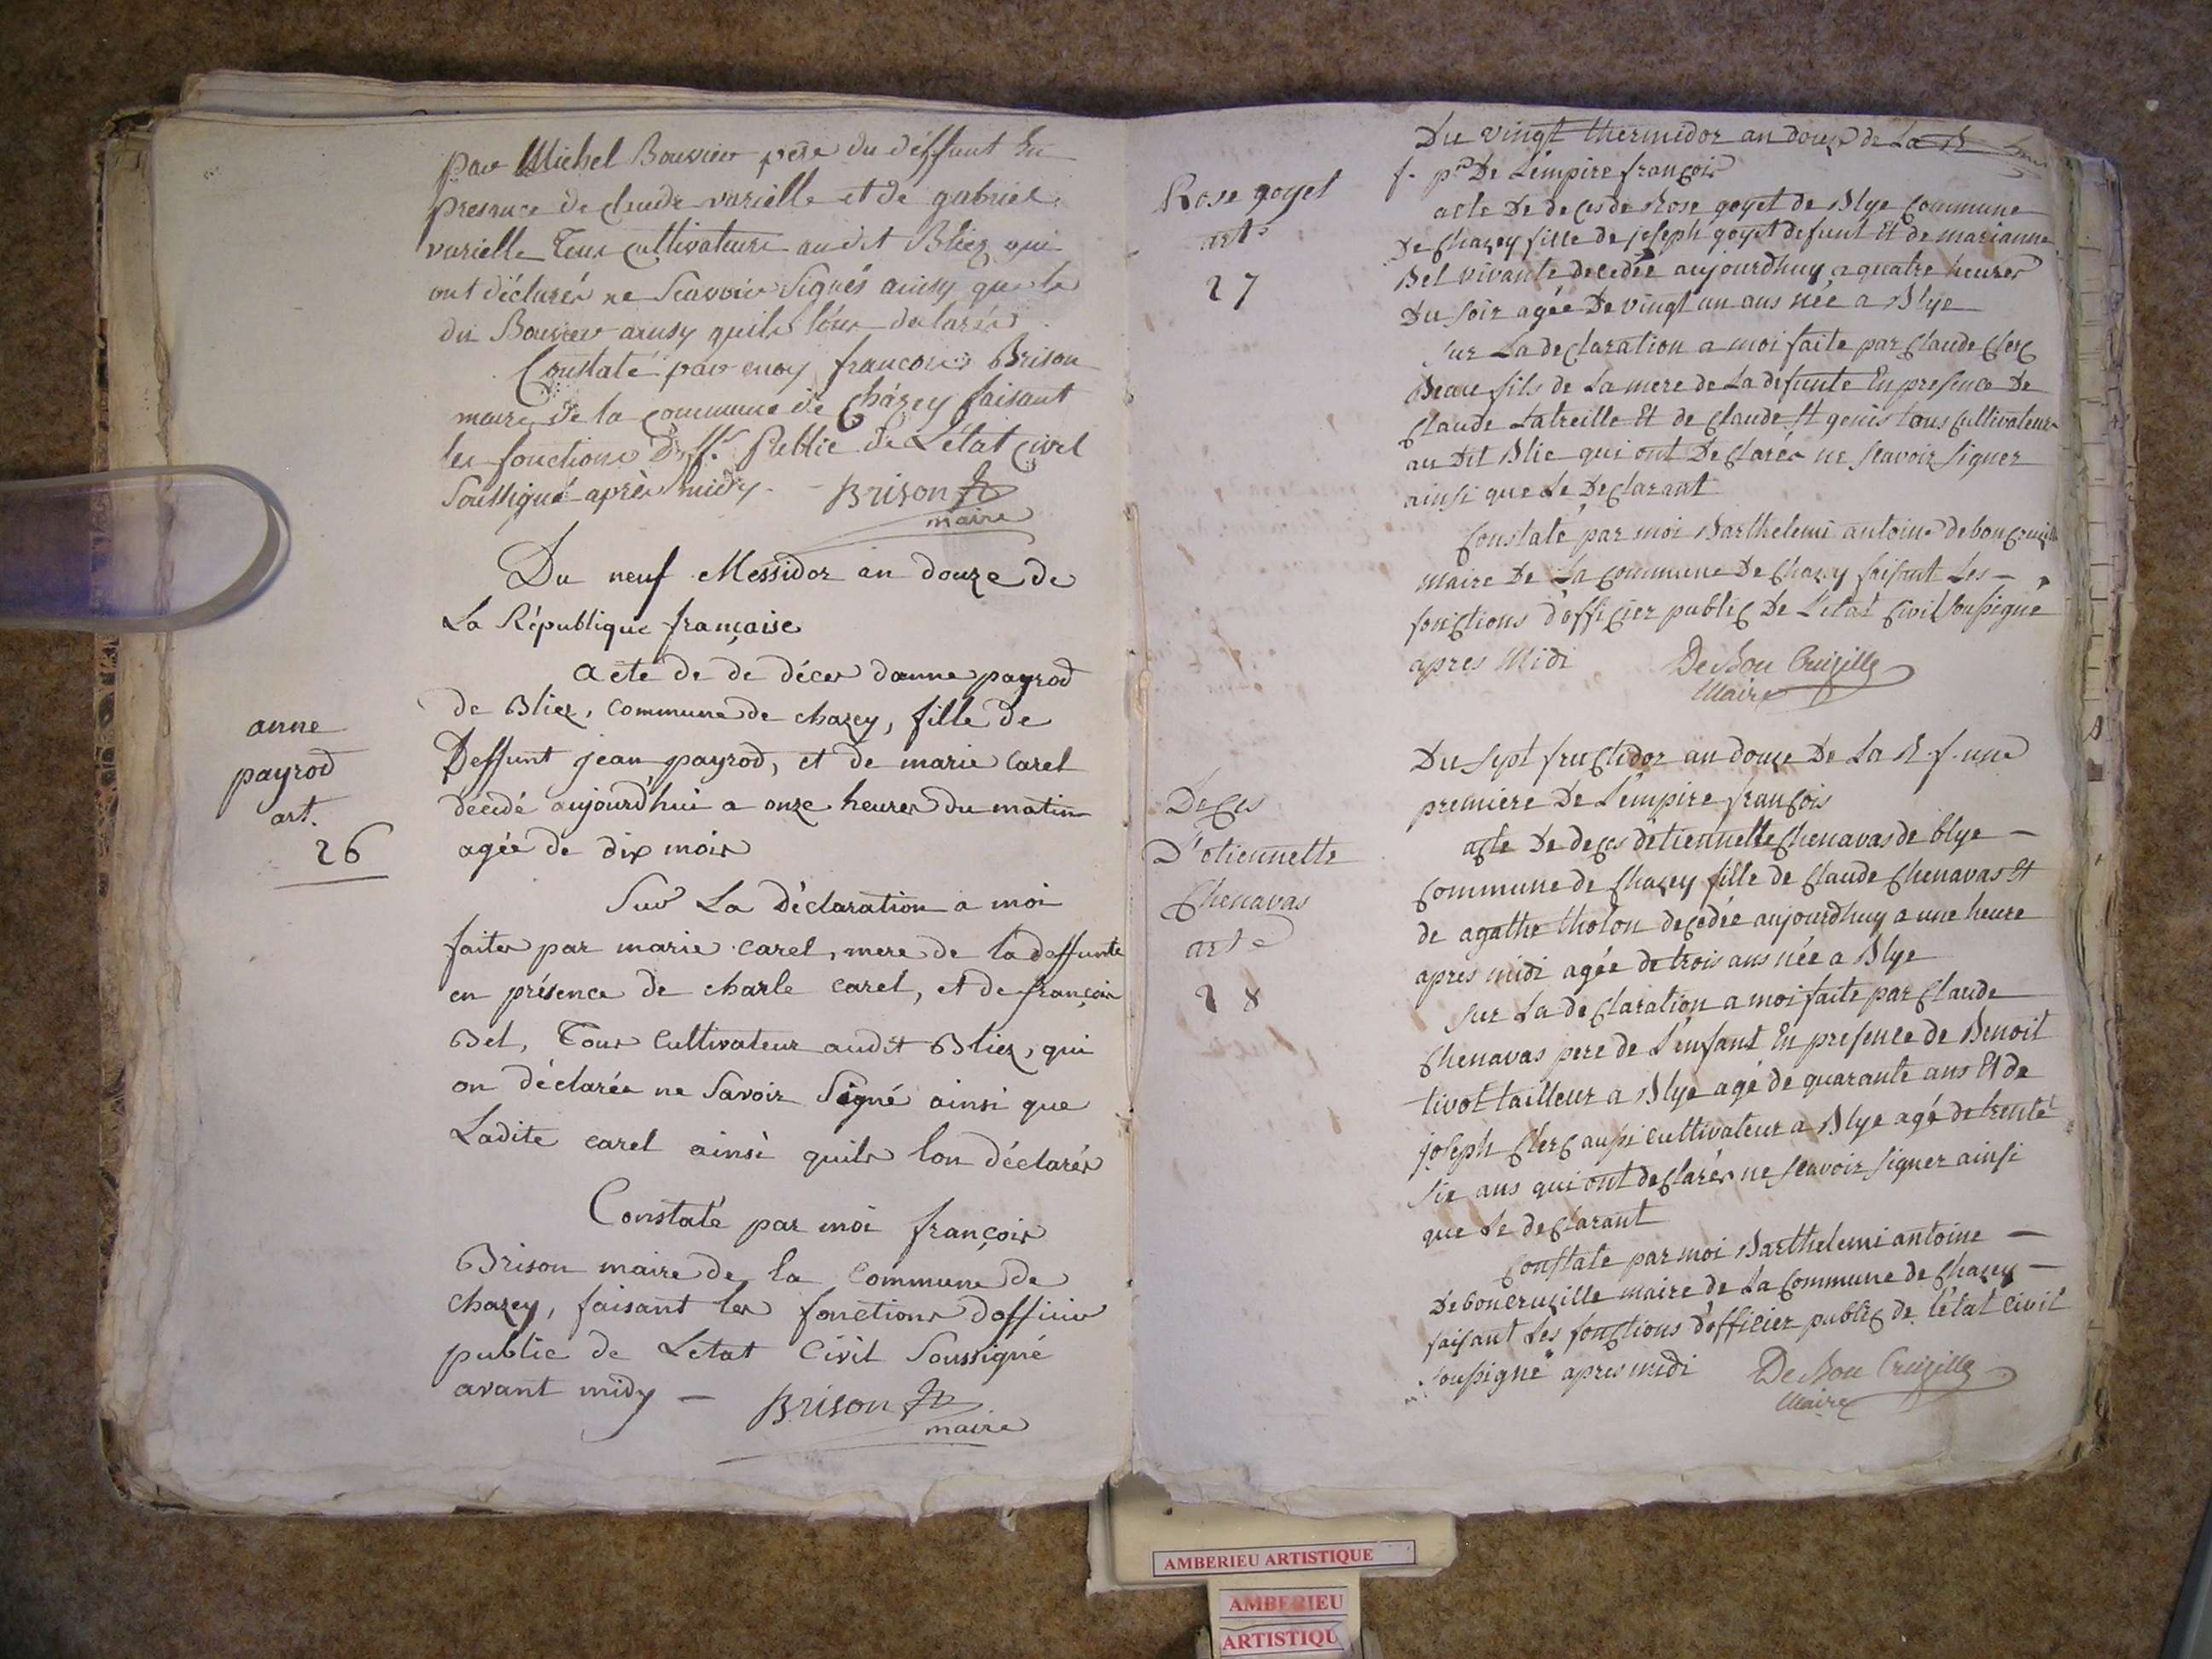 par Michel Bouvier père du déffunt En
presence de claude varielle et de gabriel
varielle Tous Cultivateurs audit Bliez qui
ont déclarés ne Scavoir Signés ainsy que le
du Bouvier ainsy quils l'ont declarés
Constaté par moy francois Brison
maire de la commune de Chazey faisant
les fonctions D'off. Public de L'état Civil
Soussigné après midy. - Brison
maire
Du neuf Messidor an douze de
La République française
anne
payrod
art.
26
acte de de déces danne payrod
de Bliez, commune de chazey, fille de
Deffunt jean payrod, et de marie carel
décédé aujourd'hui a onze heures du matin
agée de dix mois
Sur La Déclaration a moi
faites par marie carel, mere de la deffunte
en présence de charle carel, et de françois
Bel, Tous Cultivateur audit Bliez, qui
on déclarée ne Savoir Signé ainsi que
Ladite carel ainsi quils lon déclarés
Constaté par moi françois
Brison maire de la commune de
chazey, faisant les fonctions d'officier
public de Letat Civil Soussigné
avant midy - Brison
maire
Du vingt thermidor an douze de La R
f. pre De L'empire françois
Rose goyet
arte
27
acte De deces de Rose goyet de Blye Commune
De Chazey fille de joseph goyet defunt Et de marianne
Bel vivante decedée aujourdhuy a quatre heures
Du soir agée De vingt un ans née a Blye
sur La declaration a moi faite par Claude Clerc
Beau fils de La mere de La defunte En presence De
Claude Latreille Et de Claude St genis tous Cultivateurs
au Dit Blie qui ont Declarés ne scavoir signer
ainsi que Le Declarant
Constaté par moi Barthelemi antoine deboncruzille
maire De La commune De Chazey faisant Les -
fonctions d'officier public De L'état Civil soussigné
apres Midi DeBon Cruzille
Maire
Du sept fructidor an douze De La R. f. une
premiere De L'empire françois
Deces
D'etiennette
Chenavas
arte
28
acte De deces detiennette Chenavas de blye -
commune de Chazey fille de Claude Chenavas Et
de agathe tholon decedée aujourdhuy a une heure
apres midi agée de trois ans née a Blye
sur La declaration a moi faite par Claude
Chenavas pere de L'enfant En presence de Benoit
tivot tailleur a Blye agé de quarante ans Et de
joseph Clerc aussi cultivateur a Blye agé de trente
six ans qui ont declarés ne scavoir signer ainsi
que Le declarant
Constate par moi Barthelemi antoine -
Deboncruzille maire de La Commune de Chazey -
faisant Les fonctions d'officier public de L'état Civil
soussigné apres midi DeBon Cruzille
Maire
AMBERIEU ARTISTIQUE
AMBERIEU
ARTISTIQU